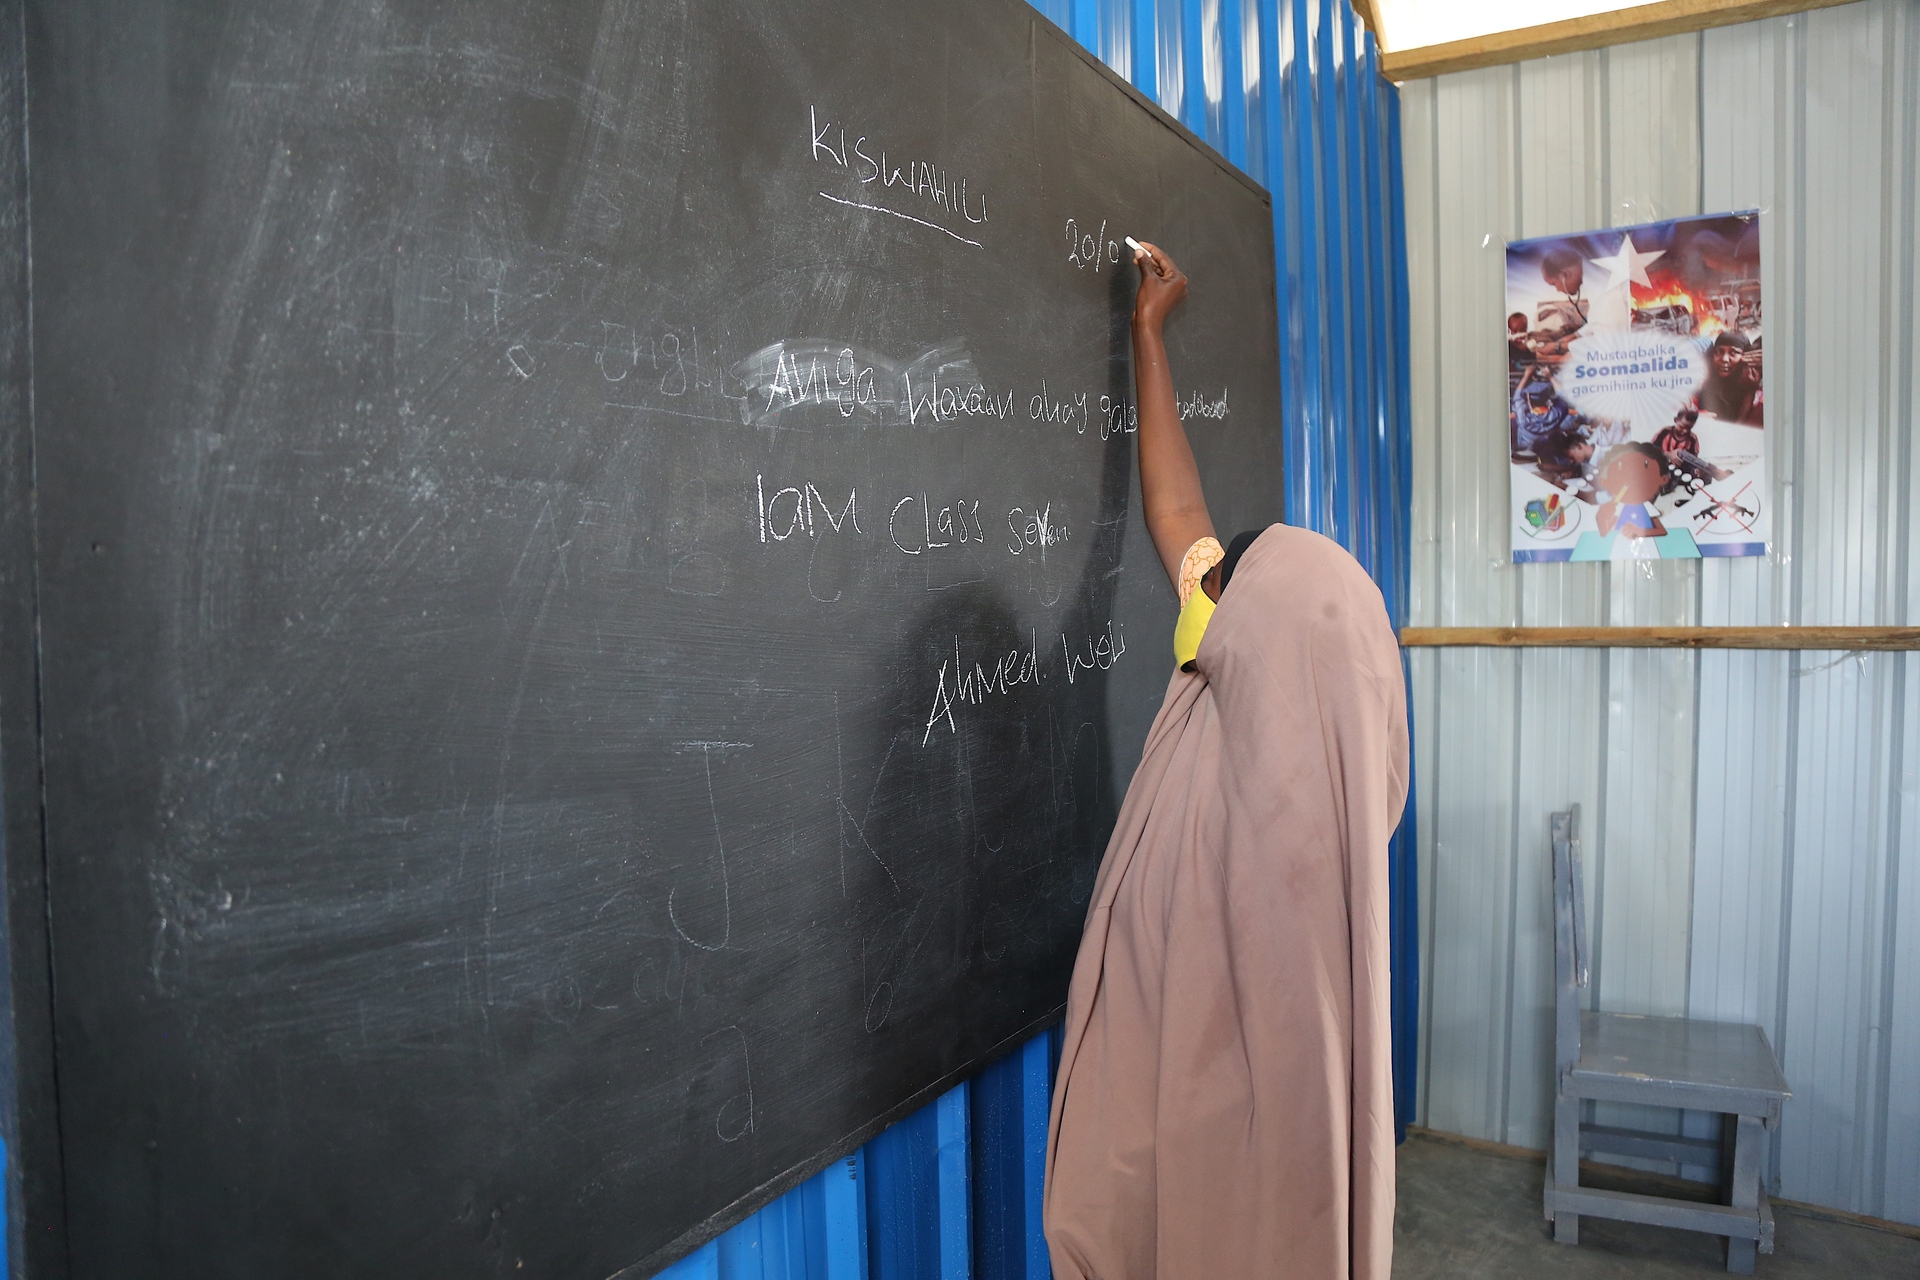 KISWAHILI
20/0
Aniga Waxaan ahay
Iam CLass seven
Ahmed. Weli
J
a
Mustaqbalka
Soomaalida
gacmihiina ku jira